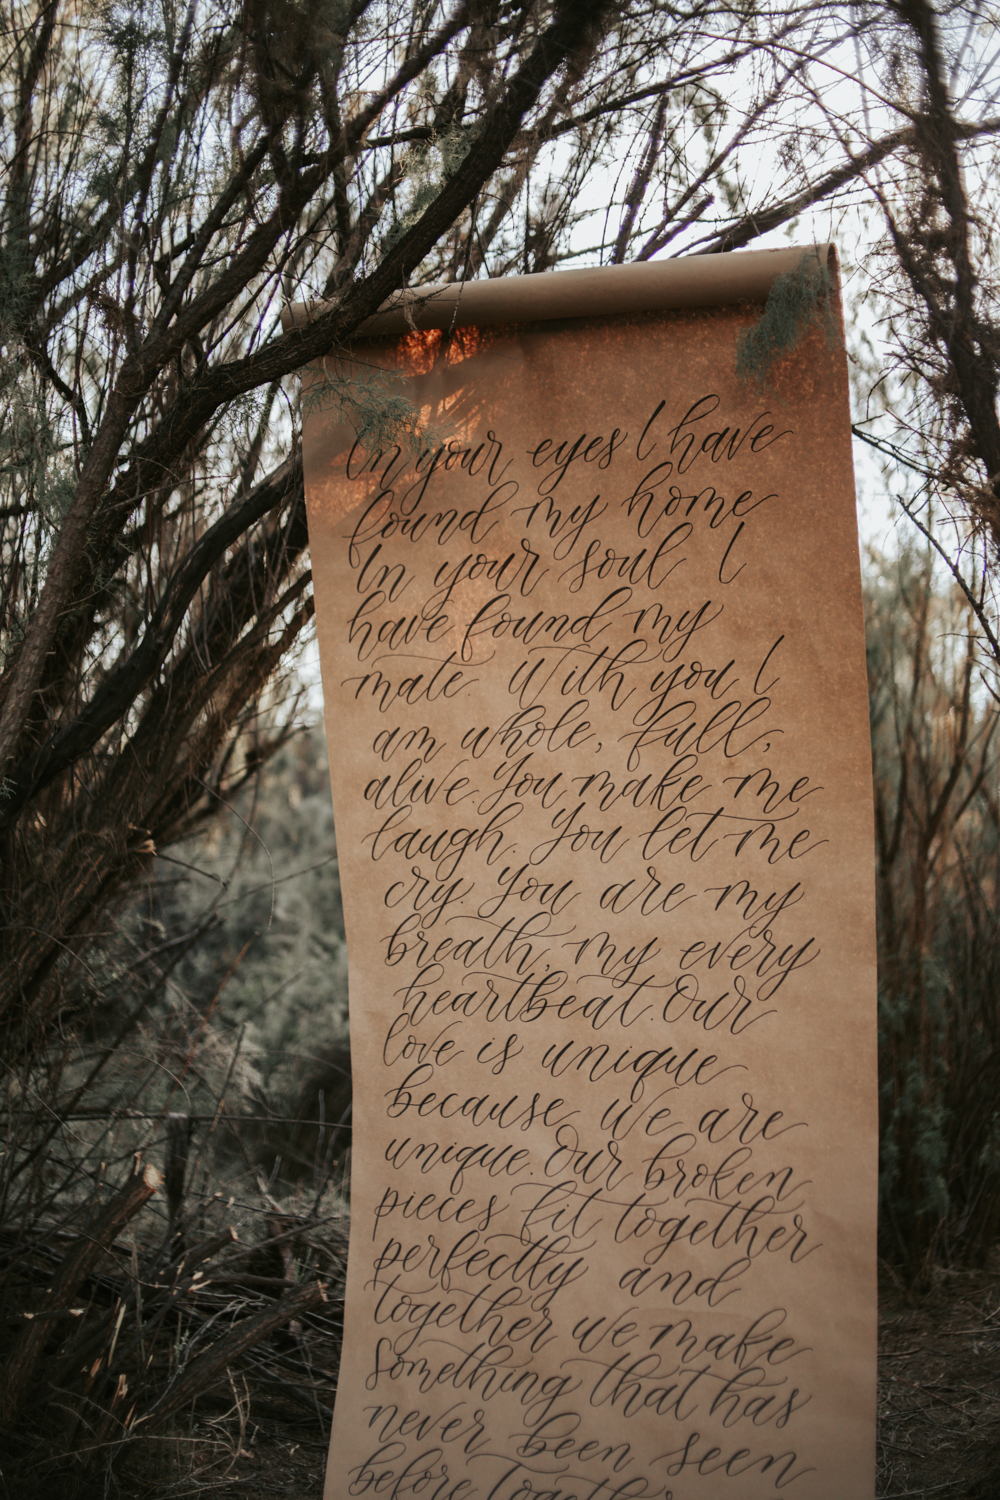 In your eyes I have
found my home
In your soul I
have found my
mate. With you I
am whole, full,
alive. You make me
laugh. You let me
cry. You are my
breath, my every
heartbeat. Our
love is unique
because we are
unique. Our broken
pieces fit together
perfectly and
together we make
something that has
never been seen
before